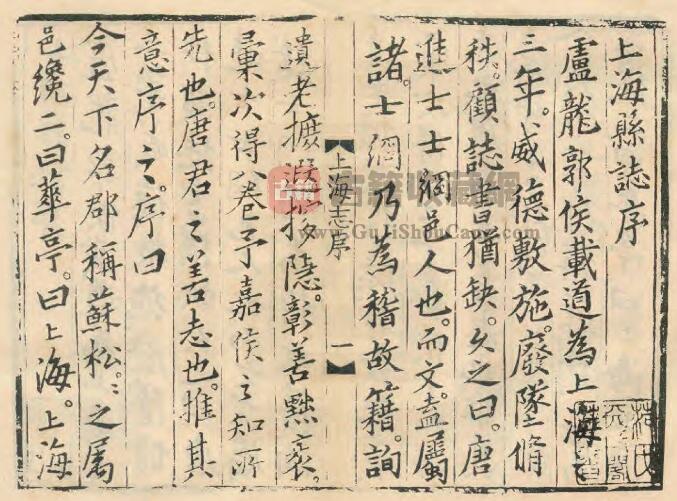 上海縣誌序
盧龍郭侯載道為上海
三年。威德敷施。廢墜脩
秩。顧誌書猶缺。久之曰。唐
進士士綱邑人也。而文。盍屬
諸。士綱乃為稽故籍。詢
上海志序 一
遺老摭隱。彰善黜衺。
彙次得八卷予嘉侯之知所
先也。唐君之善志也。推其
意序之。序曰
今天下名郡稱蘇松。〻之属
邑纔二。曰華亭。曰上海。上海
古籍
古籍收藏網
www.GuJiShouCang.com